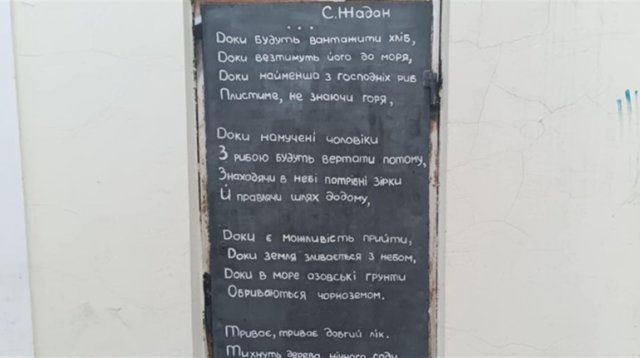 С. Жадан
* * *
Доки будуть вантажити хліб,
Доки везтимуть його до моря,
Доки найменша з господніх риб
Плистиме, не знаючи горя,
Доки намучені чоловіки
З рибою будуть вертати потому,
Знаходячи в небі потрібні зірки
Й правлячи шлях додому,
Доки є можливість прийти,
Доки земля зливається з небом,
Доки в море озовські ґрунти
Обриваються чорноземом.
Триває, триває довгий лік.
Тихнуть дерева нічного саду